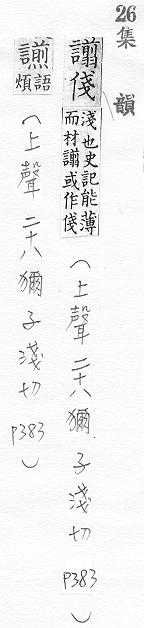 26
集韻
譾㑯
淺也史記能薄
而材譾或作㑯
(上聲 二十八 獮 子淺切 P383)
語
煩
(上聲 二十八 獮 子淺切 P383)